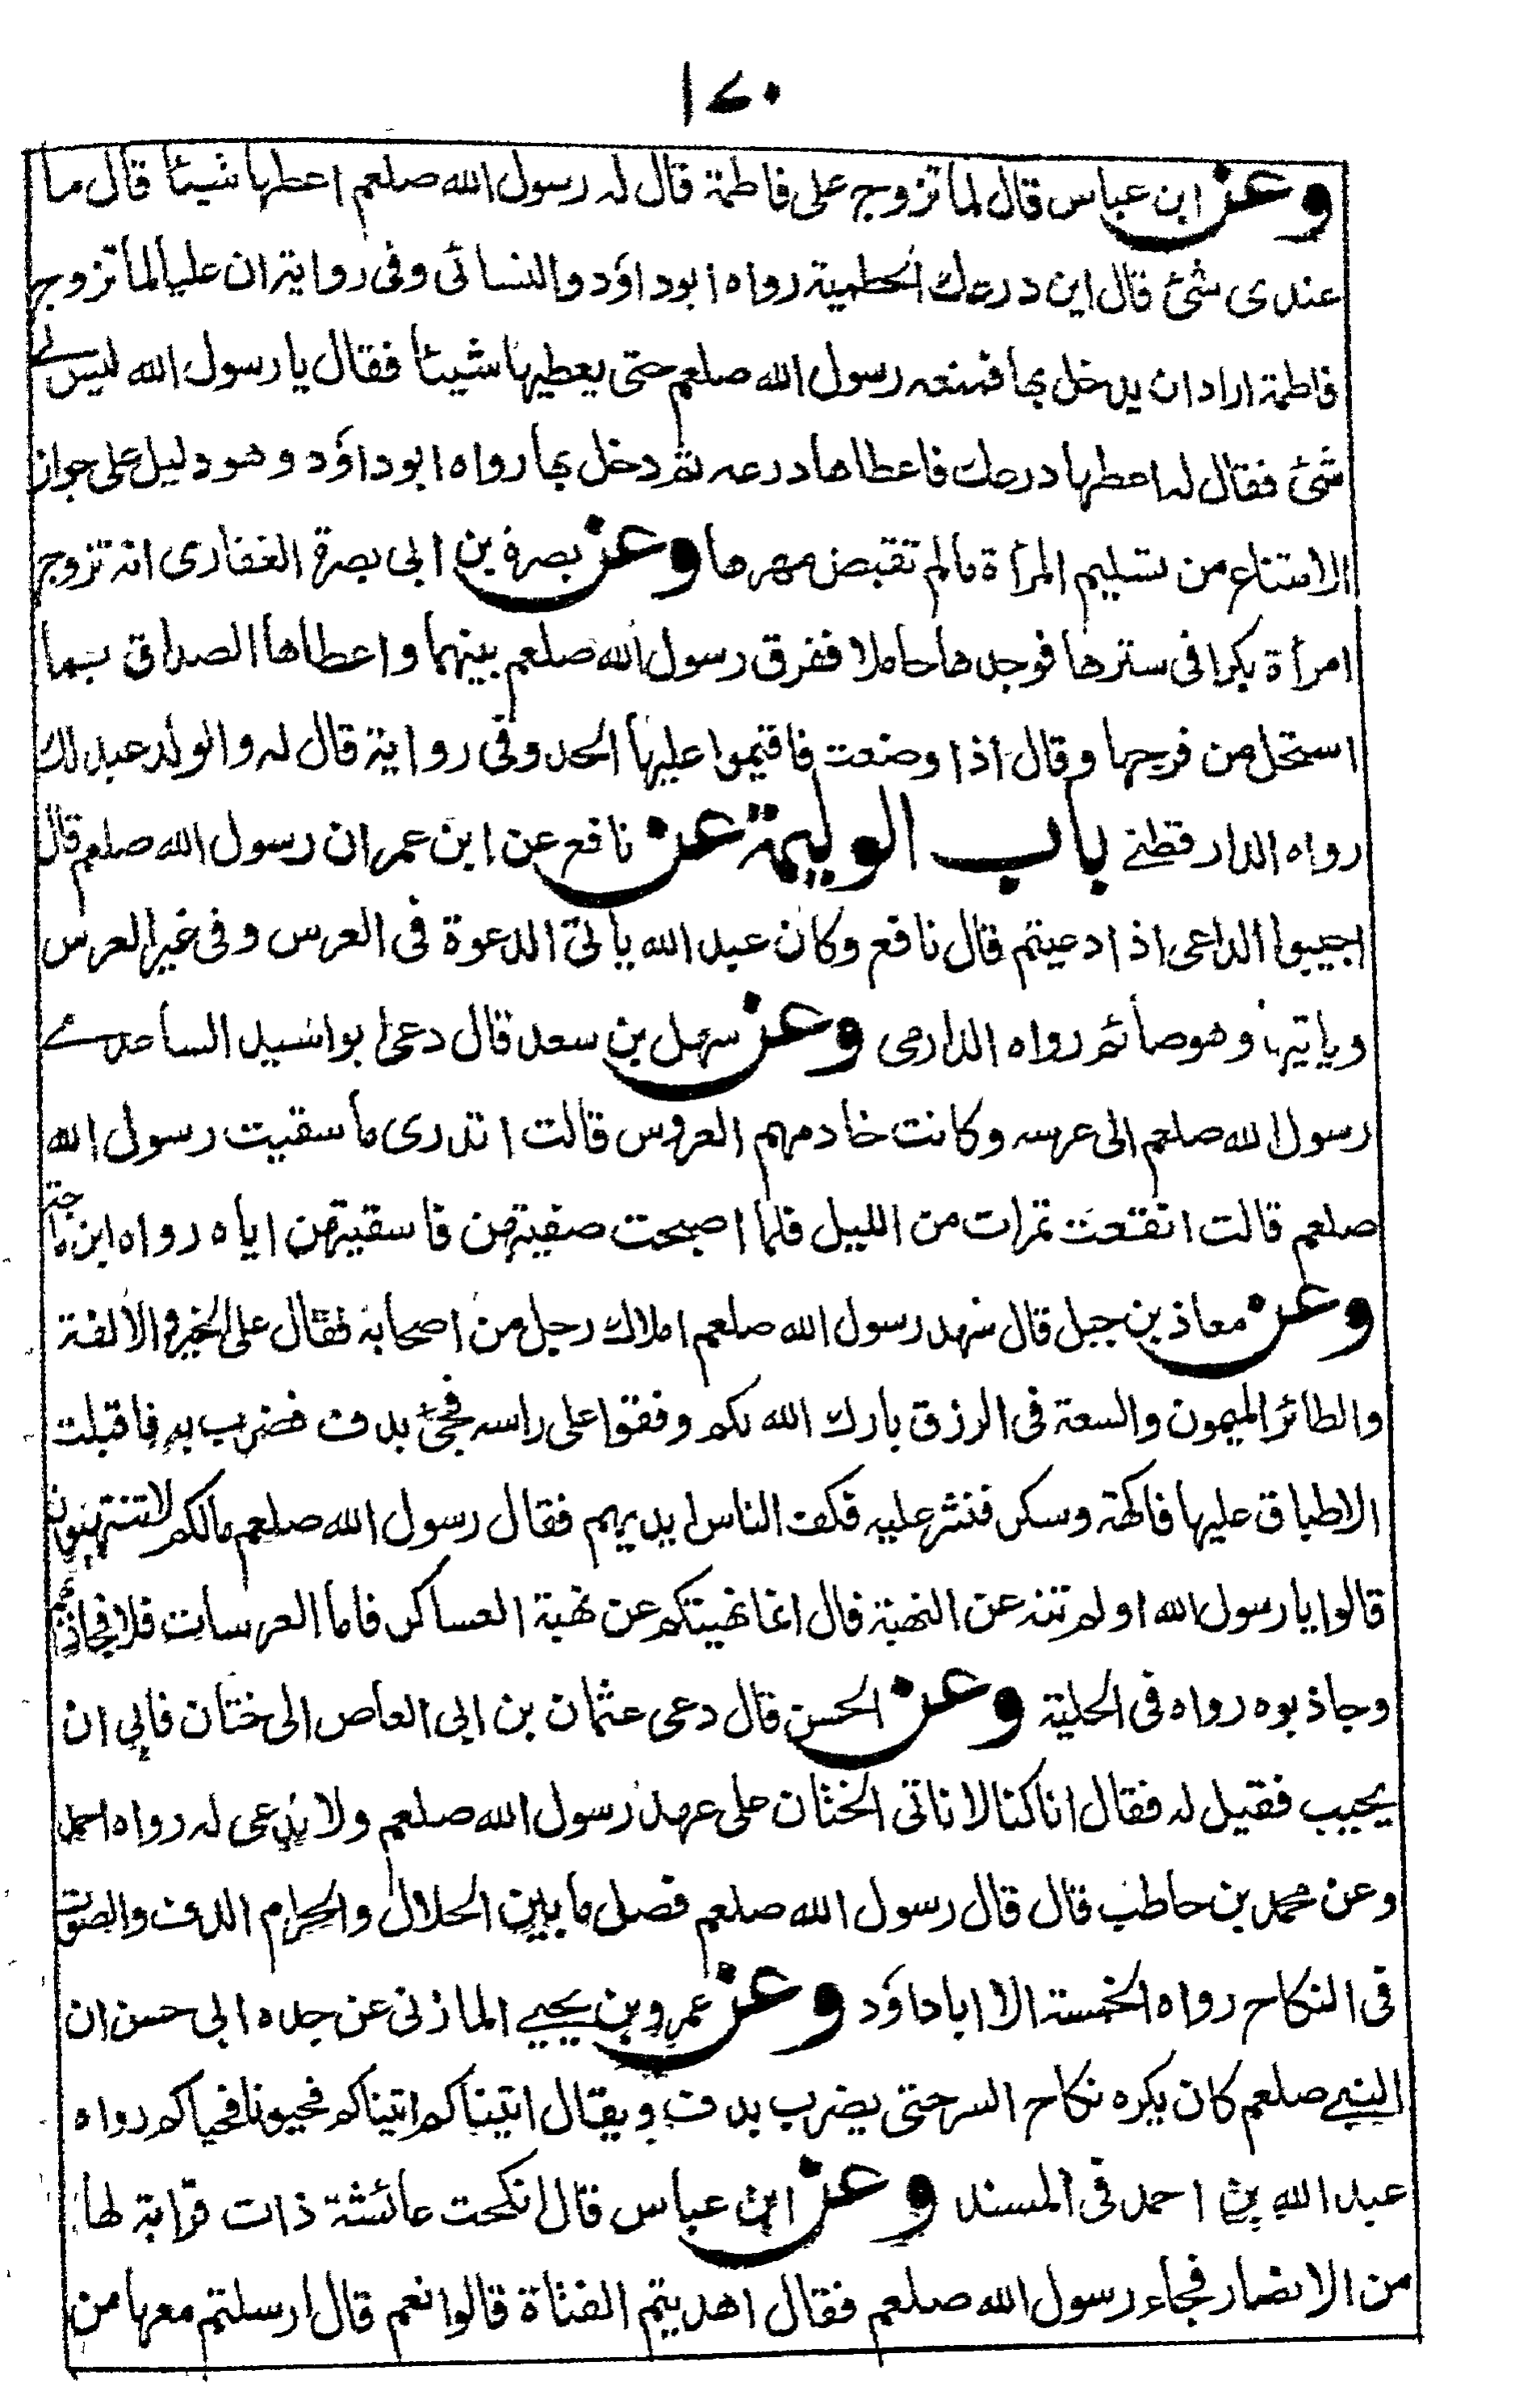 ١٧٠
وعن ابن عباس قال لما تزوج علی فاطمة قال له رسول الله صلعم اعطها شيئا قال ما
عندی شئ قال این درعك الحطمية رواه ابوداؤد والنسائی وفی رواية ان عليا لما تزوج
فاطمة اراد ان يدخل بها فمنعه رسول الله صلعم حتى يعطيها شيئا فقال يا رسول الله ليس لے
شئ فقال له اعطها درعك فاعطاها درعه ثم دخل بها رواه ابوداؤد وهو دليل على جواز
الامتناع من تسليم المرأة مالم تقبض مهرها وعن بصرة بن ابی بصرة الغفاری انه تزوج
امرأة بكرا فی سترها فوجدها حاملا ففرق رسول الله صلعم بينهما واعطاها الصداق بما
استحل من فرجها وقال اذا وضعت فاقيموا عليها الحد وفی رواية قال له والولد عبد لك
رواه الدار قطنے باب الوليمة عن نافع عن ابن عمر ان رسول الله صلعم قال
اجيبوا الداعی اذا دعيتم قال نافع وكان عبد الله ياتی الدعوة فی العرس وفی غير العرس
وياتيها وهو صائم رواه الدارمی وعن سهل بن سعد قال دعی ابو اسيد الساعدے
رسول الله صلعم الى عرسه وكانت خادمهم العروس قالت اتدری ما سقيت رسول الله
صلعم قالت انقعت تمرات من الليل فلما اصبحت صفيتهن فاسقيتهن اياه رواه ابن ماجة
وعن معاذ بن جبل قال شهد رسول الله صلعم املاك رجل من اصحابه فقال على الخير والالفة
والطائر الميمون والسعة فی الرزق بارك الله لكم وفقوا على راسه فجئ بدف فضرب به فاقبلت
الاطباق عليها فاكهة وسكر فنثر عليه فكف الناس ايديهم فقال رسول الله صلعم مالكم لا تنتهبون
قالوا يا رسول الله اولم تنه عن النهبة قال انما نهيتكم عن نهبة العساكر فاما العرسات فلا فجاذبهم
وجاذبوه رواه فی الحلية وعن الحسن قال دعی عثمان بن ابی العاص الى ختان فابى ان
يجيب فقيل له فقال انا كنا لا ناتی الختان على عهد رسول الله صلعم ولا يدعى له رواه احمد
وعن محمد بن حاطب قال قال رسول الله صلعم فصل ما بين الحلال والحرام الدف والصوت
فی النكاح رواه الخمسة الا اباداؤد وعن عمرو بن يحيے المازنی عن جده ابی حسن ان
النبے صلعم كان يكره نكاح السر حتى يضرب بدف ويقال اتيناكم اتيناكم فحيونا فحياكم رواه
عبد الله بن احمد فی المسند وعن ابن عباس قال انكحت عائشة ذات قرابة لها
من الانصار فجاء رسول الله صلعم فقال اهديتم الفتاة قالوا نعم قال ارسلتم معها من